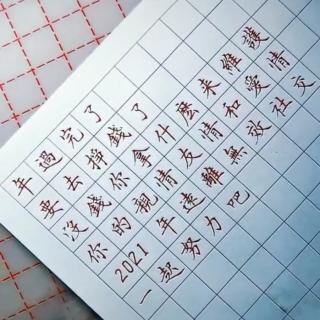 年過完了
要去掙錢了
沒錢你拿什麼來維護
你的親情友情和愛情
2021年遠離無效社交
一起努力吧